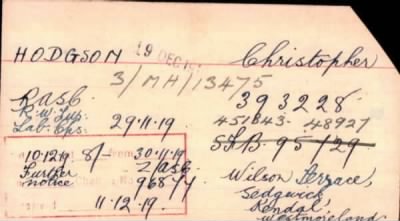 HODGSON 19 DEC 19 Christopher
3/MH/13475
RASB. 393228
R.W. Fus. 451343. 48927
Lab. Cps. 29·11·19 SFB. 95129
10·12·19 8/- from 30·11·19
Further RASB Wilson Terrace,
notice 968 Sedgwick
11·12·19 Kendal,
Westmoreland